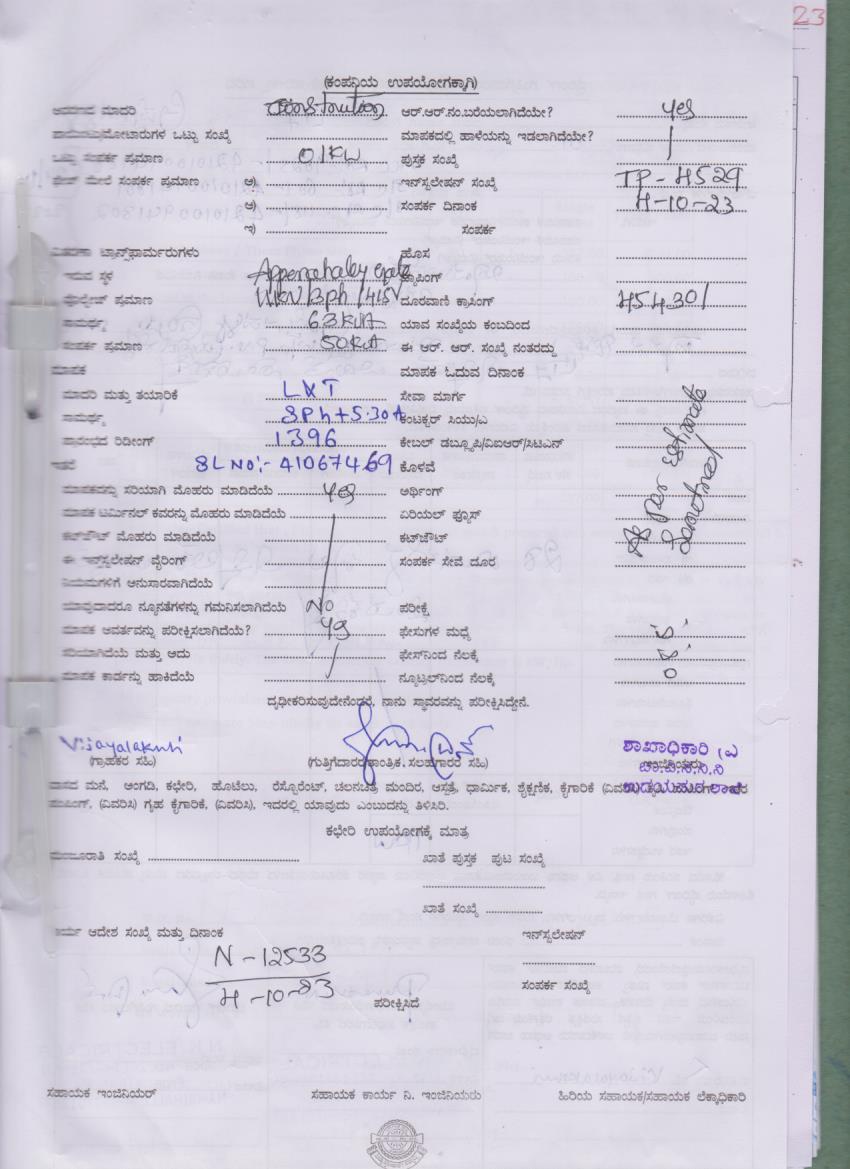 23
(ಕಂಪನಿಯ ಉಪಯೋಗಕ್ಕಾಗಿ)
ಮಾದರಿ Construction ಆರ್.ಆರ್.ನಂ.ಬರೆಯಲಾಗಿದೆಯೇ? yes
ಒಟ್ಟು ಸಂಖ್ಯೆ ಮಾಪಕದಲ್ಲಿ ಹಾಳೆಯನ್ನು ಇಡಲಾಗಿದೆಯೇ?
ಒಟ್ಟು ಸಂಪರ್ಕ ಪ್ರಮಾಣ 01KW ಪುಸ್ತಕ ಸಂಖ್ಯೆ
ಮೇಲೆ ಸಂಪರ್ಕ ಪ್ರಮಾಣ ಅ) ಇನ್‌ಸ್ಟಲೇಷನ್ ಸಂಖ್ಯೆ TP-4529
ಆ) ಸಂಪರ್ಕ ದಿನಾಂಕ 4-10-23
ಇ) ಸಂಪರ್ಕ
ಟ್ರಾನ್ಸ್‌ಫಾರ್ಮರುಗಳು ಹೊಸ
ಇರುವ ಸ್ಥಳ ಟ್ಯಾಪಿಂಗ್
ವೋಲ್ಟೇಜ್ ಪ್ರಮಾಣ 11KV/3ph/415V ದೂರವಾಣಿ ಕ್ರಾಸಿಂಗ್ 45430/
ಸಾಮರ್ಥ್ಯ 63KVA ಯಾವ ಸಂಖ್ಯೆಯ ಕಂಬದಿಂದ
ಸಂಪರ್ಕ ಪ್ರಮಾಣ 50KVA ಈ ಆರ್. ಆರ್. ಸಂಖ್ಯೆ ನಂತರದ್ದು
ಮಾಪಕ ಮಾಪಕ ಓದುವ ದಿನಾಂಕ
ಮಾದರಿ ಮತ್ತು ತಯಾರಿಕೆ L&T ಸೇವಾ ಮಾರ್ಗ
ಸಾಮರ್ಥ್ಯ 3Ph+5-30A ಕಂಟಕ್ಟರ್ ಸಿಯು/ಎ
ಪ್ರಾರಂಭದ ರಿಡೀಂಗ್ 1396 ಕೇಬಲ್ ಡಬ್ಲ್ಯೂಪಿ/ವಿಐಆರ್/ಸಿಟಿಎನ್
ಇತರೆ SL NO:- 41067469 ಕೊಳವೆ
ಮಾಪಕವನ್ನು ಸರಿಯಾಗಿ ಮೊಹರು ಮಾಡಿದೆಯೆ yes ಅರ್ಥಿಂಗ್
ಮಾಪಕ ಟರ್ಮಿನಲ್ ಕವರನ್ನು ಮೊಹರು ಮಾಡಿದೆಯೆ ಏರಿಯಲ್ ಫ್ಯೂಸ್
ಕಟ್‌ಔಟ್ ಮೊಹರು ಮಾಡಿದೆಯೆ ಕಟ್‌ಔಟ್
ಈ ಇನ್‌ಸ್ಟಲೇಷನ್ ವೈರಿಂಗ್ ಸಂಪರ್ಕ ಸೇವೆ ದೂರ
As per Estimate
ನಿಯಮಗಳಿಗೆ ಅನುಸಾರವಾಗಿದೆಯೆ
ಯಾವುದಾದರೂ ನ್ಯೂನತೆಗಳನ್ನು ಗಮನಿಸಲಾಗಿದೆಯೆ No ಪರೀಕ್ಷೆ
ಮಾಪಕ ಆವರ್ತವನ್ನು ಪರೀಕ್ಷಿಸಲಾಗಿದೆಯೆ? yes ಫೇಸುಗಳ ಮಧ್ಯೆ
ಸರಿಯಾಗಿದೆಯೆ ಮತ್ತು ಅದು ಫೇಸ್‌ನಿಂದ ನೆಲಕ್ಕೆ
ಮಾಪಕ ಕಾರ್ಡನ್ನು ಹಾಕಿದೆಯೆ ನ್ಯೂಟ್ರಲ್‌ನಿಂದ ನೆಲಕ್ಕೆ
ದೃಢೀಕರಿಸುವುದೇನೆಂದರೆ, ನಾನು ಸ್ಥಾವರವನ್ನು ಪರೀಕ್ಷಿಸಿದ್ದೇನೆ.
Vijayalakshmi
(ಗ್ರಾಹಕರ ಸಹಿ) (ಗುತ್ತಿಗೆದಾರರ ತಾಂತ್ರಿಕ. ಸಲಹಗಾರರ ಸಹಿ)
ಶಾಖಾಧಿಕಾರಿ
ಮನೆ, ಅಂಗಡಿ, ಕಛೇರಿ, ಹೊಟೇಲು, ರೆಸ್ಟೊರೆಂಟ್, ಚಲನಚಿತ್ರ ಮಂದಿರ, ಆಸ್ಪತ್ರೆ, ಧಾರ್ಮಿಕ, ಶೈಕ್ಷಣಿಕ, ಕೈಗಾರಿಕೆ
(ವಿವರಿಸಿ) ಗೃಹ ಕೈಗಾರಿಕೆ, (ವಿವರಿಸಿ), ಇದರಲ್ಲಿ ಯಾವುದು ಎಂಬುದನ್ನು ತಿಳಿಸಿರಿ.
ಕಛೇರಿ ಉಪಯೋಗಕ್ಕೆ ಮಾತ್ರ
ಮಂಜೂರಾತಿ ಸಂಖ್ಯೆ ಖಾತೆ ಪುಸ್ತಕ ಪುಟ ಸಂಖ್ಯೆ
ಖಾತೆ ಸಂಖ್ಯೆ
ಕಾರ್ಯ ಆದೇಶ ಸಂಖ್ಯೆ ಮತ್ತು ದಿನಾಂಕ ಇನ್‌ಸ್ಟಲೇಷನ್
N-12533
4-10-23
ಸಂಪರ್ಕ ಸಂಖ್ಯೆ
ಪರೀಕ್ಷಿಸಿದೆ
ಸಹಾಯಕ ಇಂಜಿನಿಯರ್ ಸಹಾಯಕ ಕಾರ್ಯ ನಿ. ಇಂಜಿನಿಯರು ಹಿರಿಯ ಸಹಾಯಕ/ಸಹಾಯಕ ಲೆಕ್ಕಾಧಿಕಾರಿ